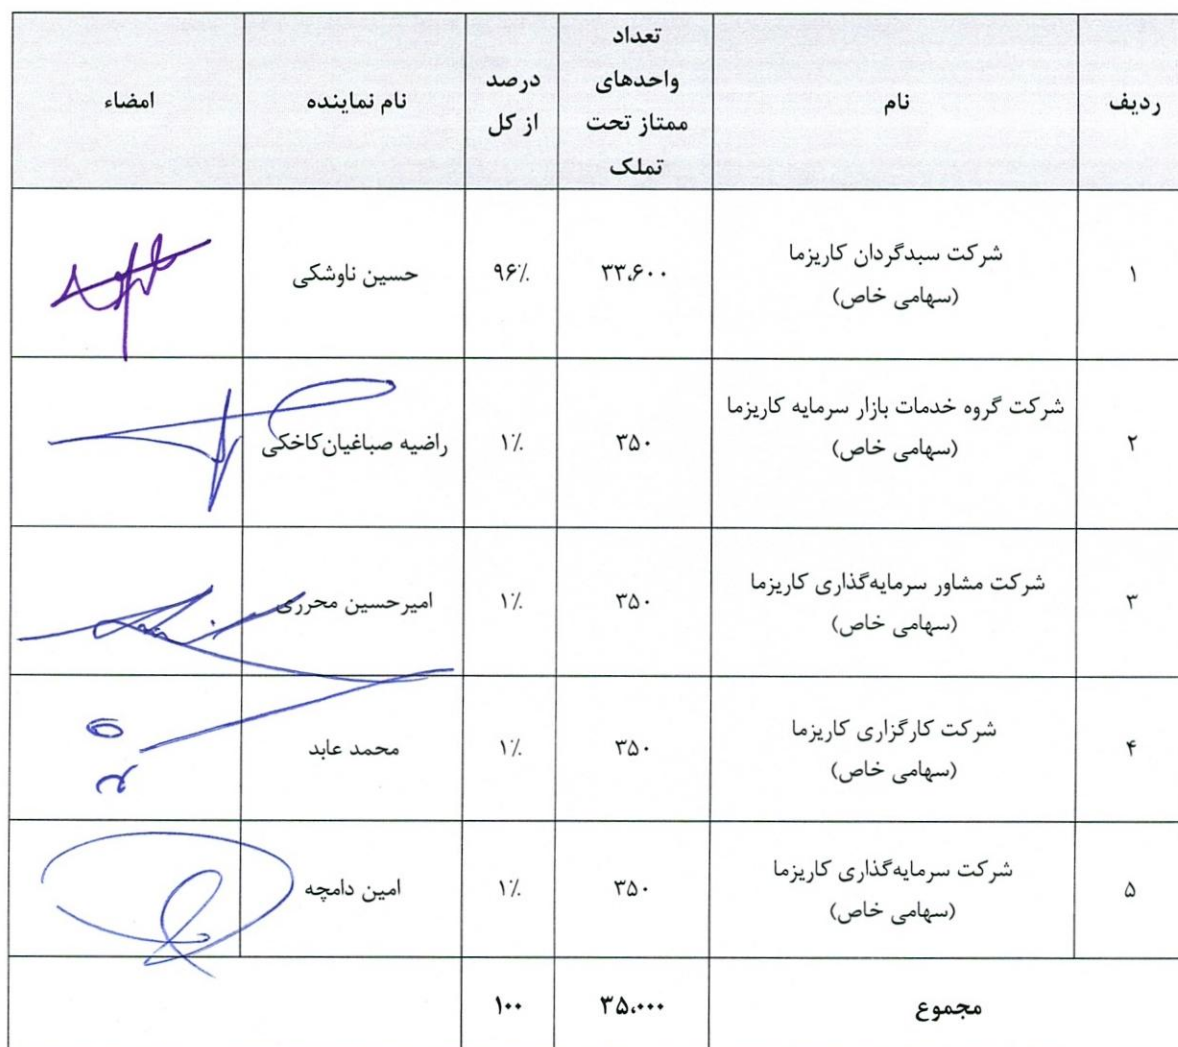 ردیف
نام
تعداد
واحدهای
ممتاز تحت
تملک
درصد
از کل
نام نماینده
امضاء
۱
شرکت سبدگردان کاریزما
(سهامی خاص)
۳۳،۶۰۰
۹۶٪
حسین ناوشکی
۲
شرکت گروه خدمات بازار سرمایه کاریزما
(سهامی خاص)
۳۵۰
۱٪
راضیه صباغیان‌کاخکی
۳
شرکت مشاور سرمایه‌گذاری کاریزما
(سهامی خاص)
۳۵۰
۱٪
امیرحسین محرری
۴
شرکت کارگزاری کاریزما
(سهامی خاص)
۳۵۰
۱٪
محمد عابد
۵
شرکت سرمایه‌گذاری کاریزما
(سهامی خاص)
۳۵۰
۱٪
امین دامچه
مجموع
۳۵،۰۰۰
۱۰۰